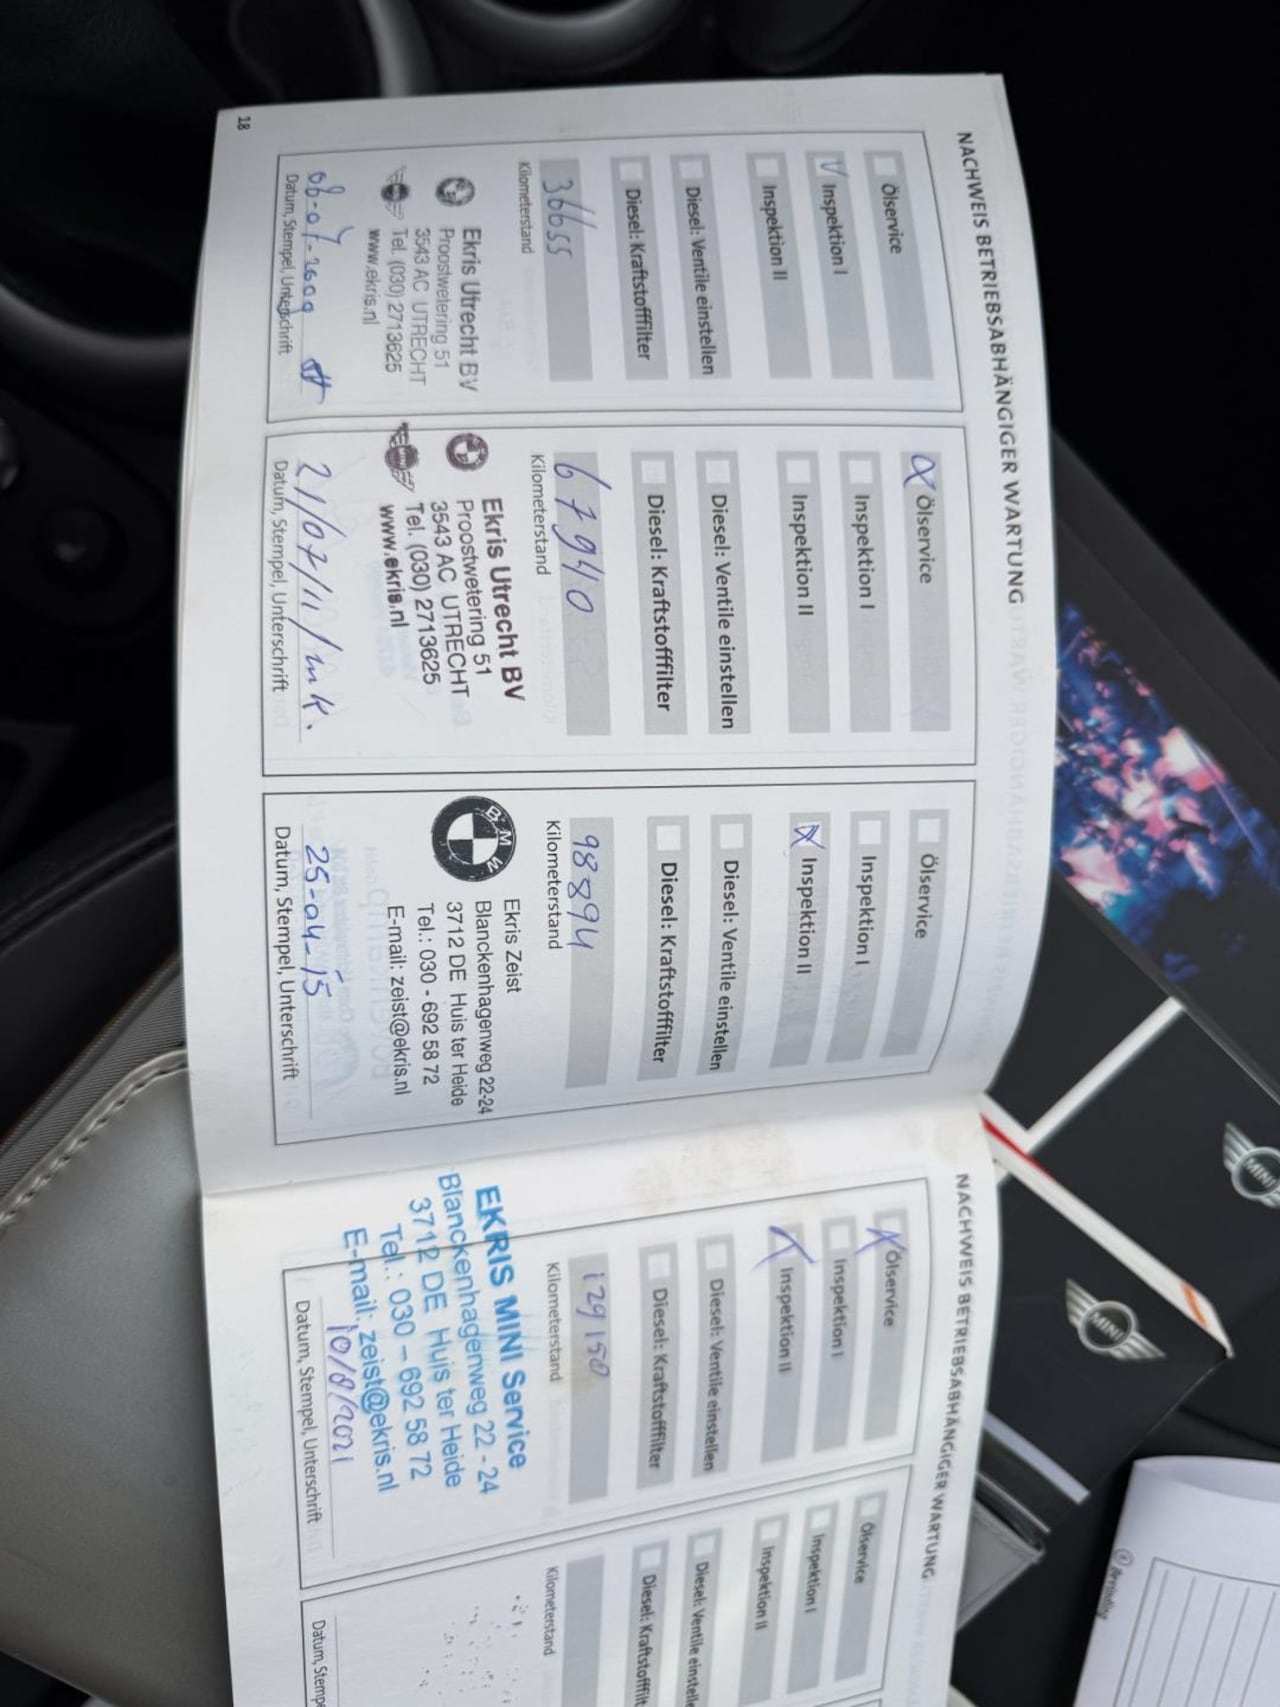 NACHWEIS BETRIEBSABHÄNGIGER WARTUNG
Ölservice
V Inspektion I
Inspektion II
Diesel: Ventile einstellen
Diesel: Kraftstofffilter
36655
Kilometerstand
Ekris Utrecht BV
Proostwetering 51
3543 AC UTRECHT
Tel. (030) 2713625
www.ekris.nl
Datum, Stempel, Unterschrift
X Ölservice
Inspektion I
Inspektion II
Diesel: Ventile einstellen
Diesel: Kraftstofffilter
67940
Kilometerstand
Ekris Utrecht BV
Proostwetering 51
3543 AC UTRECHT
Tel. (030) 2713625
www.ekris.nl
21/07/11/mk.
Datum, Stempel, Unterschrift
Ölservice
Inspektion I
X Inspektion II
Diesel: Ventile einstellen
Diesel: Kraftstofffilter
98894
Kilometerstand
BMW
Ekris Zeist
Blanckenhagenweg 22-24
3712 DE Huis ter Heide
Tel.: 030 - 692 58 72
E-mail: zeist@ekris.nl
25-04-15
Datum, Stempel, Unterschrift
18
NACHWEIS BETRIEBSABHÄNGIGER WARTUNG
X Ölservice
Inspektion I
X Inspektion II
Diesel: Ventile einstellen
Diesel: Kraftstofffilter
129150
Kilometerstand
EKRIS MINI Service
Blanckenhagenweg 22 - 24
3712 DE Huis ter Heide
Tel.: 030 - 692 58 72
E-mail: zeist@ekris.nl
10/8/2021
Datum, Stempel, Unterschrift
Ölservice
Inspektion I
Inspektion II
Diesel: Ventile einstelle
Diesel: Kraftstofffilt
Kilometerstand
Datum, Stempe
MINI
MINI